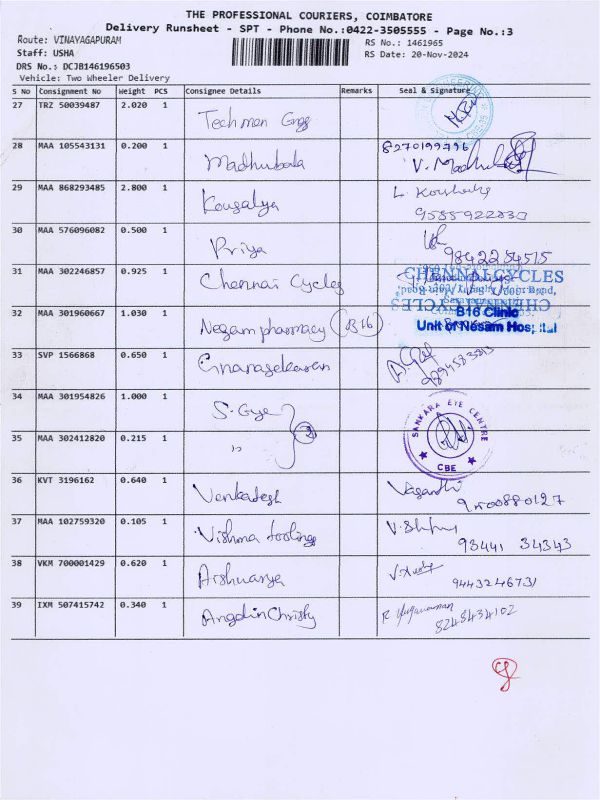 THE PROFESSIONAL COURIERS, COIMBATORE
Delivery Runsheet - SPT - Phone No.:0422-3505555 - Page No.:3
Route: VINAYAGAPURAM RS No.: 1461965
Staff: USHA RS Date: 20-Nov-2024
DRS No.: DCJB146196503
Vehicle: Two Wheeler Delivery
S No Consignment No Weight PCS Consignee Details Remarks Seal & Signature
27 TRZ 50039487 2.020 1 Techman Engg
28 MAA 105543131 0.200 1 Madhubala 8270199796
29 MAA 868293485 2.800 1 Kousalya
9585922830
30 MAA 576096082 0.500 1 Priya 9842254515
31 MAA 302246857 0.925 1 Chennai Cycles CHENNAI CYCLES
32 MAA 301960667 1.030 1 Nesam pharmacy (B16) B16 Clinic
Unit of Nesam Hospital
33 SVP 1566868 0.650 1 Gnanasekaran
34 MAA 301954826 1.000 1 S. Eye 2 SANKARA EYE CENTRE
CBE
35 MAA 302412820 0.215 1 "
36 KVT 3196162 0.640 1 Venkatesh Vasanthi
9500880127
37 MAA 102759320 0.105 1 Vishma toolings
93441 34343
38 VKM 700001429 0.620 1 Aishwarya
9443246731
39 IXM 507415742 0.340 1 Angelin Christy
8248434102